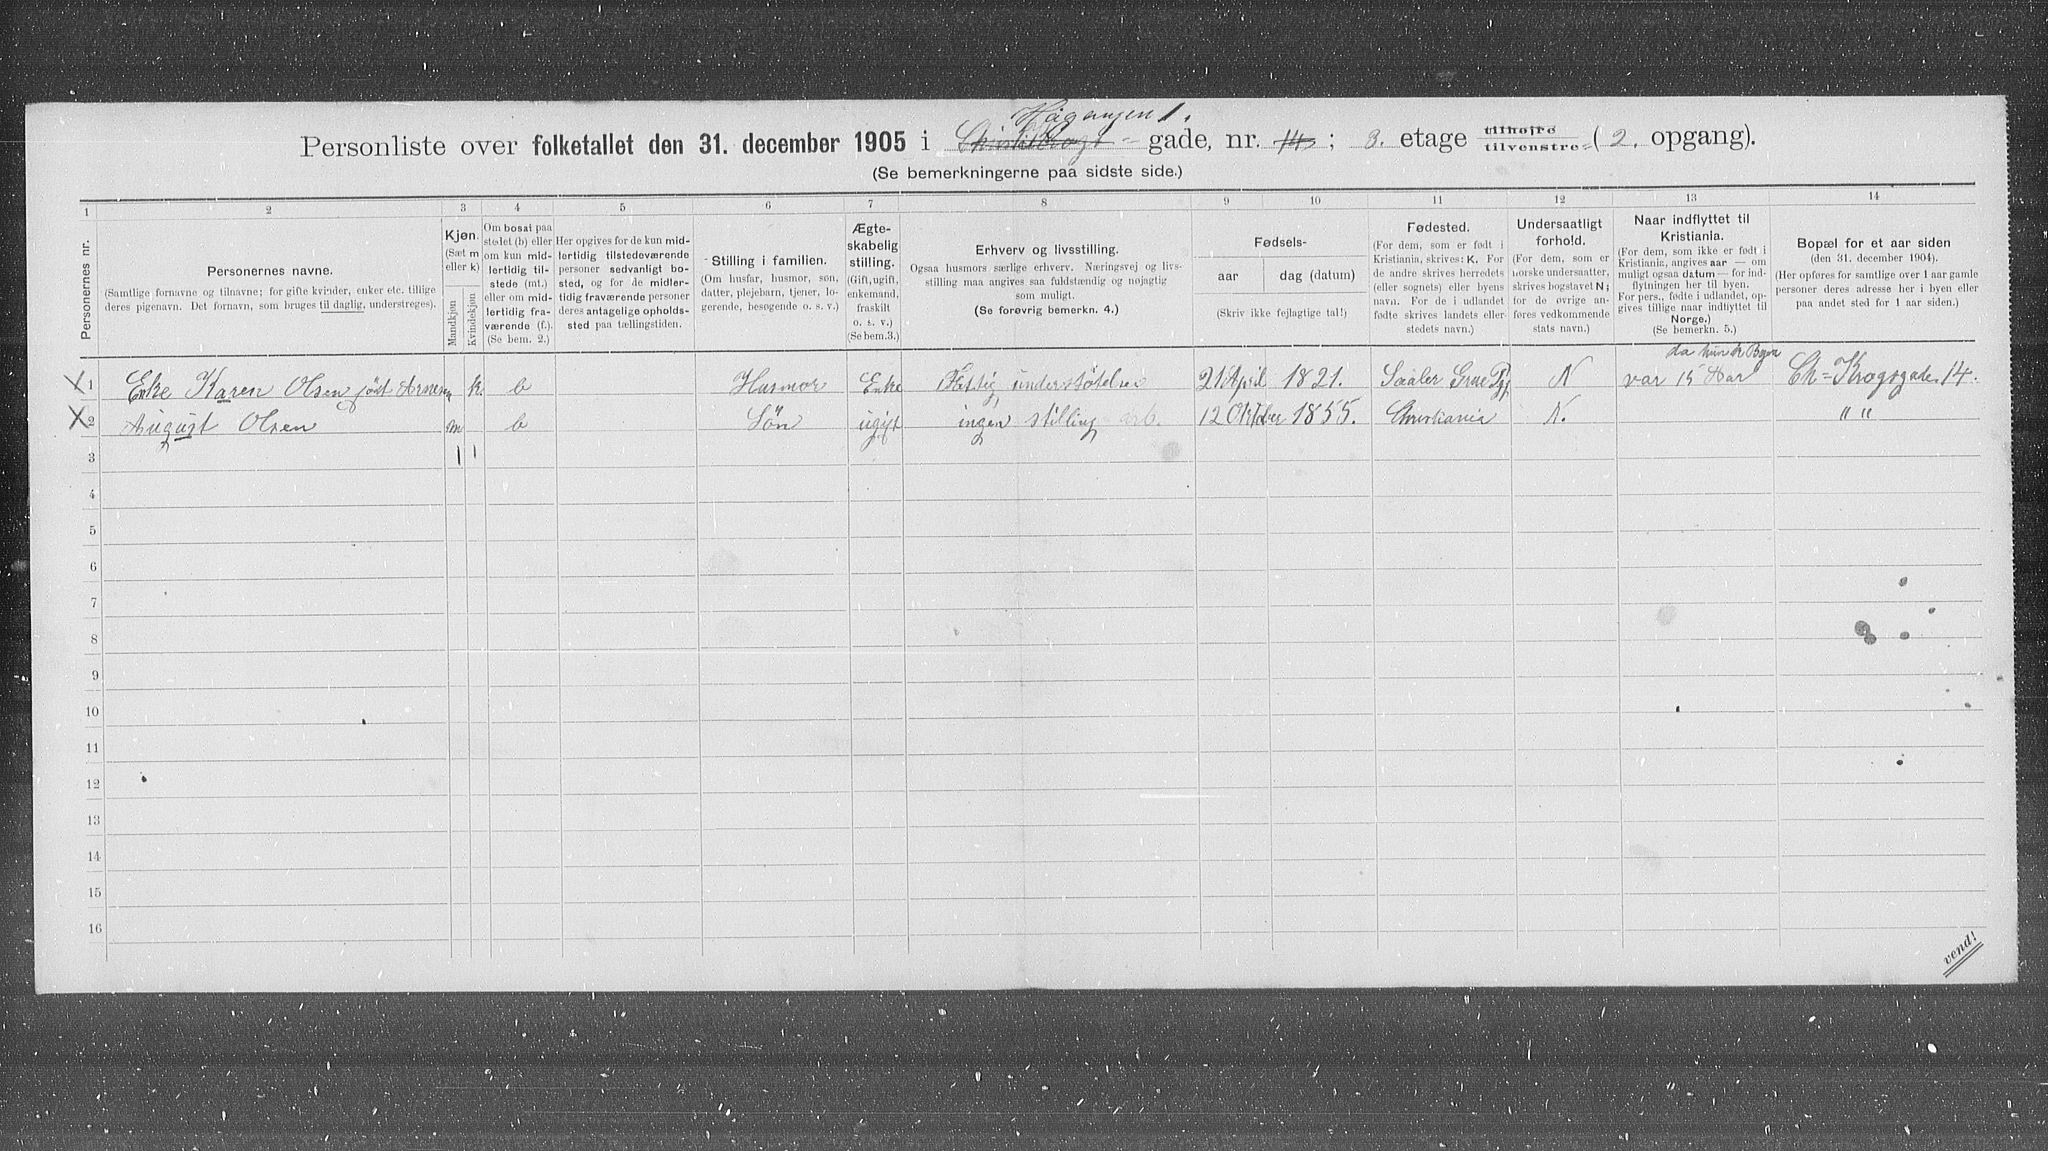 Personliste over folketallet den 31. december 1905 i gade, nr. 14; 3. etage tilhøjre tilvenstre (2. opgang).
(Se bemerkningerne paa sidste side.)
1 2 3 4 5 6 7 8 9 10 11 12 13 14
Personernes nr.
Personernes navne.
(Samtlige fornavne og tilnavne; for gifte kvinder, enker etc. tillige
deres pigenavn. Det fornavn, som bruges til daglig, understreges).
Kjøn.
(Sæt m
eller k)
Mandkjøn
Kvindekjøn
Om bosat paa
stedet (b) eller
om kun mid-
lertidig til-
stede (mt.)
eller om mid-
lertidig fra-
værende (f.).
(Se bem. 2.)
Her opgives for de kun mid-
lertidig tilstedeværende
personer sedvanlig bo-
sted, og for de midler-
tidig fraværende personer
deres antagelige opholds-
sted paa tællingstiden.
Stilling i familien.
(Om husfar, husmor, søn,
datter, plejebarn, tjener, lo-
gerende, besøgende o. s. v.)
Ægte-
skabelig
stilling.
(Gift, ugift,
enkemand,
fraskilt
o. s. v.)
(Se bem.3.)
Erhverv og livsstilling.
Ogsaa husmors særlige erhverv. Næringsvej og livs-
stilling maa angives saa fuldstændig og nøjagtig
som muligt.
(Se forøvrig bemerkn. 4.)
Fødsels-
aar dag (datum)
(Skriv ikke fejlagtige tal!)
Fødested.
(For dem, som er født i
Kristiania, skrives: K. For
de andre skrives herredets
(eller sognets) eller byens
navn. For de i udlandet
fødte skrives landets eller
stedets navn.)
Undersaatligt
forhold.
(For dem, som er
norske undersaatter,
skrives bogstavet N;
for de øvrige an-
føres vedkommende
stats navn.)
Naar indflyttet til
Kristiania.
(For dem, som ikke er født i
Kristiania, angives aar — om
muligt ogsaa datum — for ind-
flytningen her til byen.
For pers., fødte i udlandet, op-
gives tillige naar indflyttet til
Norge.)
(Se bemerkn. 5.)
Bopæl for et aar siden
(den 31. december 1904).
(Her opføres for samtlige over 1 aar gamle
personer deres adresse her i byen eller
paa andet sted for 1 aar siden.)
da hun Byen
1 Enke Karen Olsen født k. b Husmor Enke Fattig understøttelse 21 April 1821. N var 15 Aar Ch=Krogsgade 14.
2 August Olsen m b Søn ugift ingen stilling arb. 12 Oktober 1855. Christiania N. " "
3 1 1
4
5
6
7
8
9
10
11
12
13
14
15
16
vend!